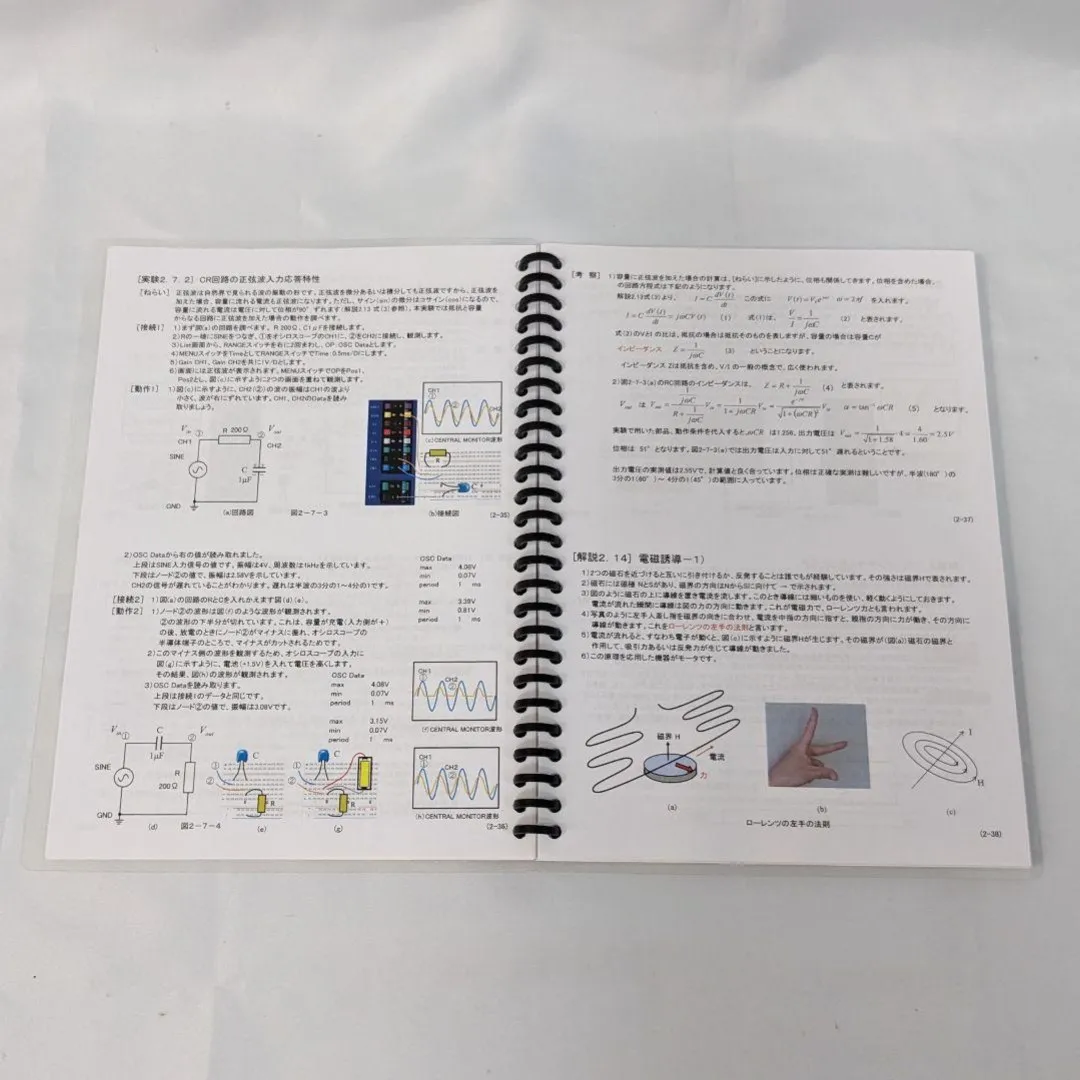 [実験2. 7. 2] CR回路の正弦波入力応答特性
[ねらい] 正弦波は自然界で見られる波の振動の形です。正弦波を微分あるいは積分しても正弦波ですから、正弦波を
加えた場合、容量に流れる電流も正弦波になります。ただし、サイン(sin)の微分はコサイン(cos)になるので、
容量に流れる電流は電圧に対して位相が90°、ずれます(解説2.13 式(3)参照)。本実験では抵抗と容量
からなる回路に正弦波を加えた場合の動作を調べます。
[接続1] 1)まず図(a)の回路を調べます。R 200Ω、C1μFを接続します。
2)Rの一端にSINEをつなぎ、①をオシロスコープのCH1に、②をCH2に接続し、観測します。
3)List画面から、RANGEスイッチを右に2回まわし、OP:OSC Dataとします。
4)MENUスイッチをTimeとしてRANGEスイッチでTime:0.5ms/Dにします。
5)Gain CH1、Gain CH2を共に1V/Dとします。
6)画面には正弦波が表示されます。MENUスイッチでOPをPos1、
Pos2とし、図(c)に示すように2つの画面を重ねて観測します。
[動作1] 1)図(c)に示すように、CH2(②)の波の振幅はCH1の波より
小さく、波が右にずれています。CH1、CH2のDataを読み
取りましょう。
CH1
①
②
CH2
(c)CENTRAL MONITOR波形
Vin ①
R 200Ω
② Vout
CH1
CH2
SINE
C
1μF
GND
(a)回路図
図2-7-3
R
C
(b)接続図
(2-35)
2)OSC Dataから右の値が読み取れました。
上段はSINE入力信号の値です。振幅は4V、周波数は1kHzを示しています。
下段はノード②の値で、振幅は2.58Vを示しています。
CH2の信号が遅れていることがわかります。遅れは半波の3分の1~4分の1です。
OSC Data
max 4.08V
min 0.07V
period 1 ms
max 3.39V
min 0.81V
period 1 ms
[接続2] 1)図(a)の回路のRとCを入れかえます図(d)(e)。
[動作2] 1)ノード②の波形は図(f)のような波形が観測されます。
②の波形の下半分が切れています。これは、容量が充電(入力側が+)
の後、放電のときにノード②がマイナスに振れ、オシロスコープの
半導体端子のところで、マイナスがカットされるためです。
2)このマイナス側の波形を観測するため、オシロスコープの入力に
図(g)に示すように、電池(+1.5V)を入れて電圧を高くします。
その結果、図(h)の波形が観測されます。
3)OSC Dataを読み取ります。
上段は接続1のデータと同じです。
下段はノード②の値で、振幅は3.08Vです。
OSC Data
max 4.08V
min 0.07V
period 1 ms
max 3.15V
min 0.07V
period 1 ms
CH1
①
CH2
②
(f)CENTRAL MONITOR波形
CH1
①
CH2
②
(h)CENTRAL MONITOR波形
Vin ①
C
1μF
② Vout
SINE
R
200Ω
GND
(d)
図2-7-4
①
②
C
R
(e)
①
②
C
R
(g)
(2-36)
[考 察] 1)容量に正弦波を加えた場合の計算は、[ねらい]に示したように、位相も関係してきます。位相を含めた場合、
の回路方程式は下記のようになります。
解説2.13式(3)より、 I=C dV(t)/dt この式に V(t)=V₀e^jωt ω=2πf を入れます。
I=C dV(t)/dt=jωCV(t) (1) 式(1)は、 V/I=1/jωC (2) と表されます。
式(2)のVとIの比は、抵抗の場合は抵抗そのものを表しますが、容量の場合は容量Cが
インピーダンス Z=1/jωC (3) ということになります。
インピーダンス Zは抵抗を含め、V/Iの一般の概念で、広く使われます。
2)図2-7-3(a)のRC回路のインピーダンスは、 Z=R+1/jωC (4) と表されます。
α=tan⁻¹ωCR (5) となります。
実験で用いた部品、動作条件を代入するとωCR は1.256、出力電圧は Vout=1/√(1+1.58)・4=4/1.60=2.5V
位相は 51°となります。図2-7-3(a)では出力電圧は入力に対して51°遅れるということです。
出力電圧の実測値は2.55Vで、計算値と良く合っています。位相は正確な実測は難しいですが、半波(180°)の
3分の1(60°)~4分の1(45°)の範囲に入っています。
(2-37)
[解説2. 14] 電磁誘導-1)
1)2つの磁石を近づけると互いに引き付けるか、反発することは誰でもが経験しています。その強さは磁界Hで表されます。
2)磁石には磁極NとSがあり、磁界の方向はNからSに向けて→で示されます。
3)図のように磁石の上に導線を置き電流を流します。このとき導線には細いものを使い、軽く動くようにしておきます。
電流が流れた瞬間に導線は図の力の方向に動きます。これが電磁力で、ローレンツ力とも言われます。
4)写真のように左手人差し指を磁界の向きに合わせ、電流を中指の方向に指すと、親指の方向に力が働き、その方向に
導線が動きます。これをローレンツの左手の法則と言います。
5)電流が流れると、すなわち電子が動くと、図(c)に示すように磁界Hが生じます。その磁界が(図(a))磁石の磁界と
作用して、吸引力あるいは反発力が生じて導線が動きました。
6)この原理を応用した機器がモータです。
磁界 H
電流
力
(a)
(b)
I
H
(c)
ローレンツの左手の法則
(2-38)